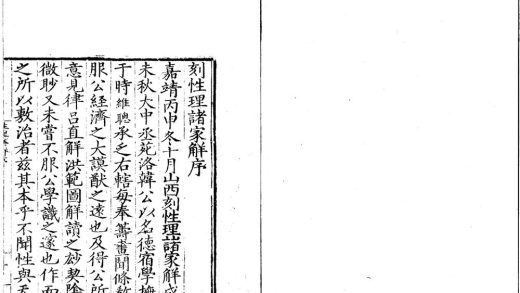 刻性理諸家解序
嘉靖丙申冬十月山西刻性理諸家解成
未秋大中丞苑洛韓公以名德宿學撫
于時維聰承乏右轄每奉籌畫聞條敎
服公經濟之大謨猷之遠也及得公所
意見律呂直解洪範圖解讀之玅契陰
微眇又未嘗不服公學識之邃也作而
之所以敷治者茲其本乎不聞性與天